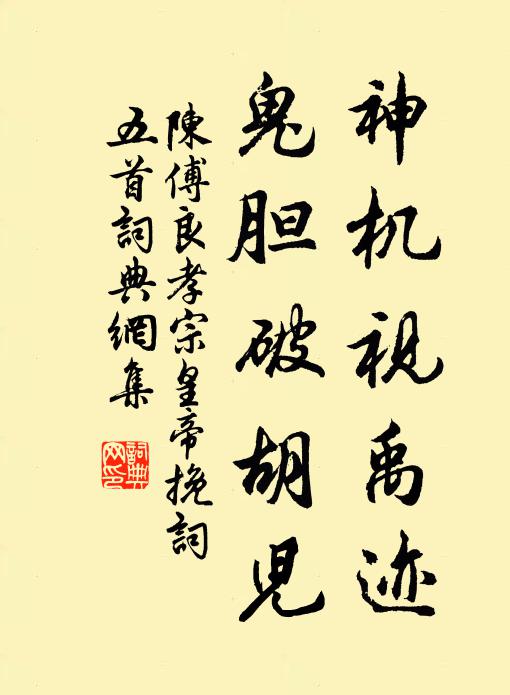 神机视禹迹
鬼胆破胡児
陳傅良孝宗皇帝挽詞
五首詞典網集
詞典
网印